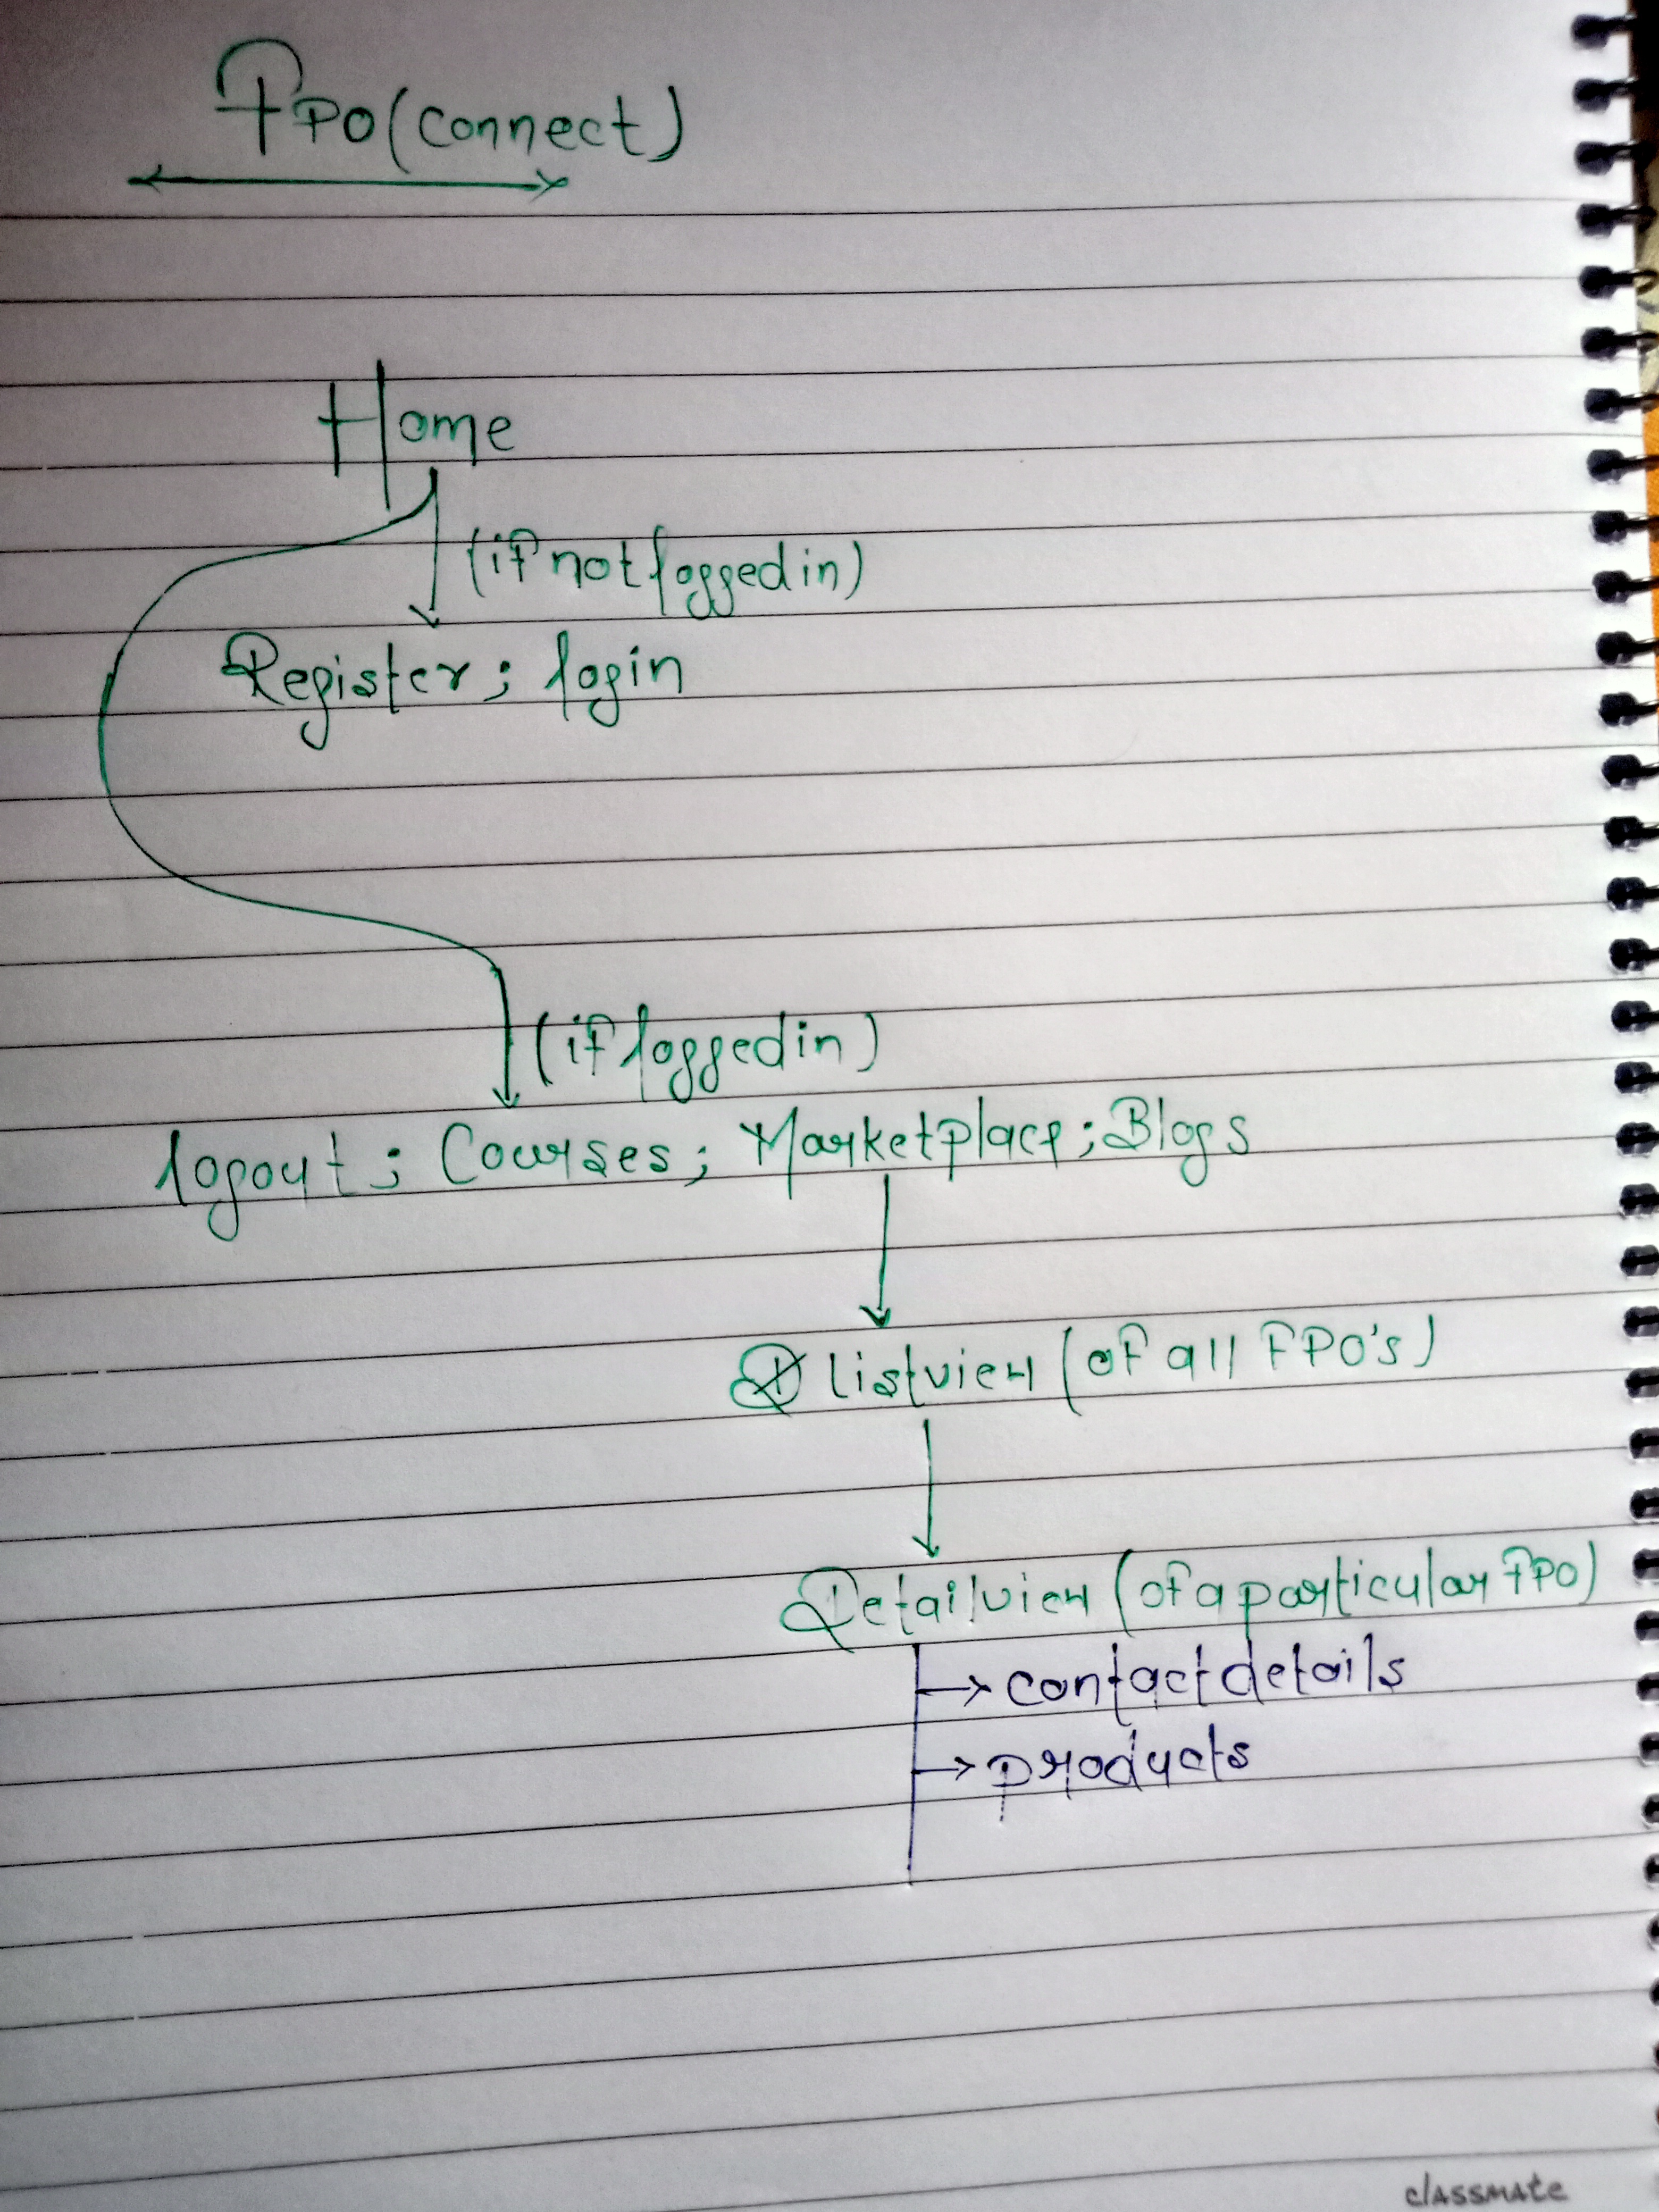 FPO (connect)
Home
(if not logged in)
Register; login
(if logged in)
logout; Courses; Marketplace; Blogs
Listview (of all FPO's)
Detailview (of a particular FPO)
contact details
products
classmate